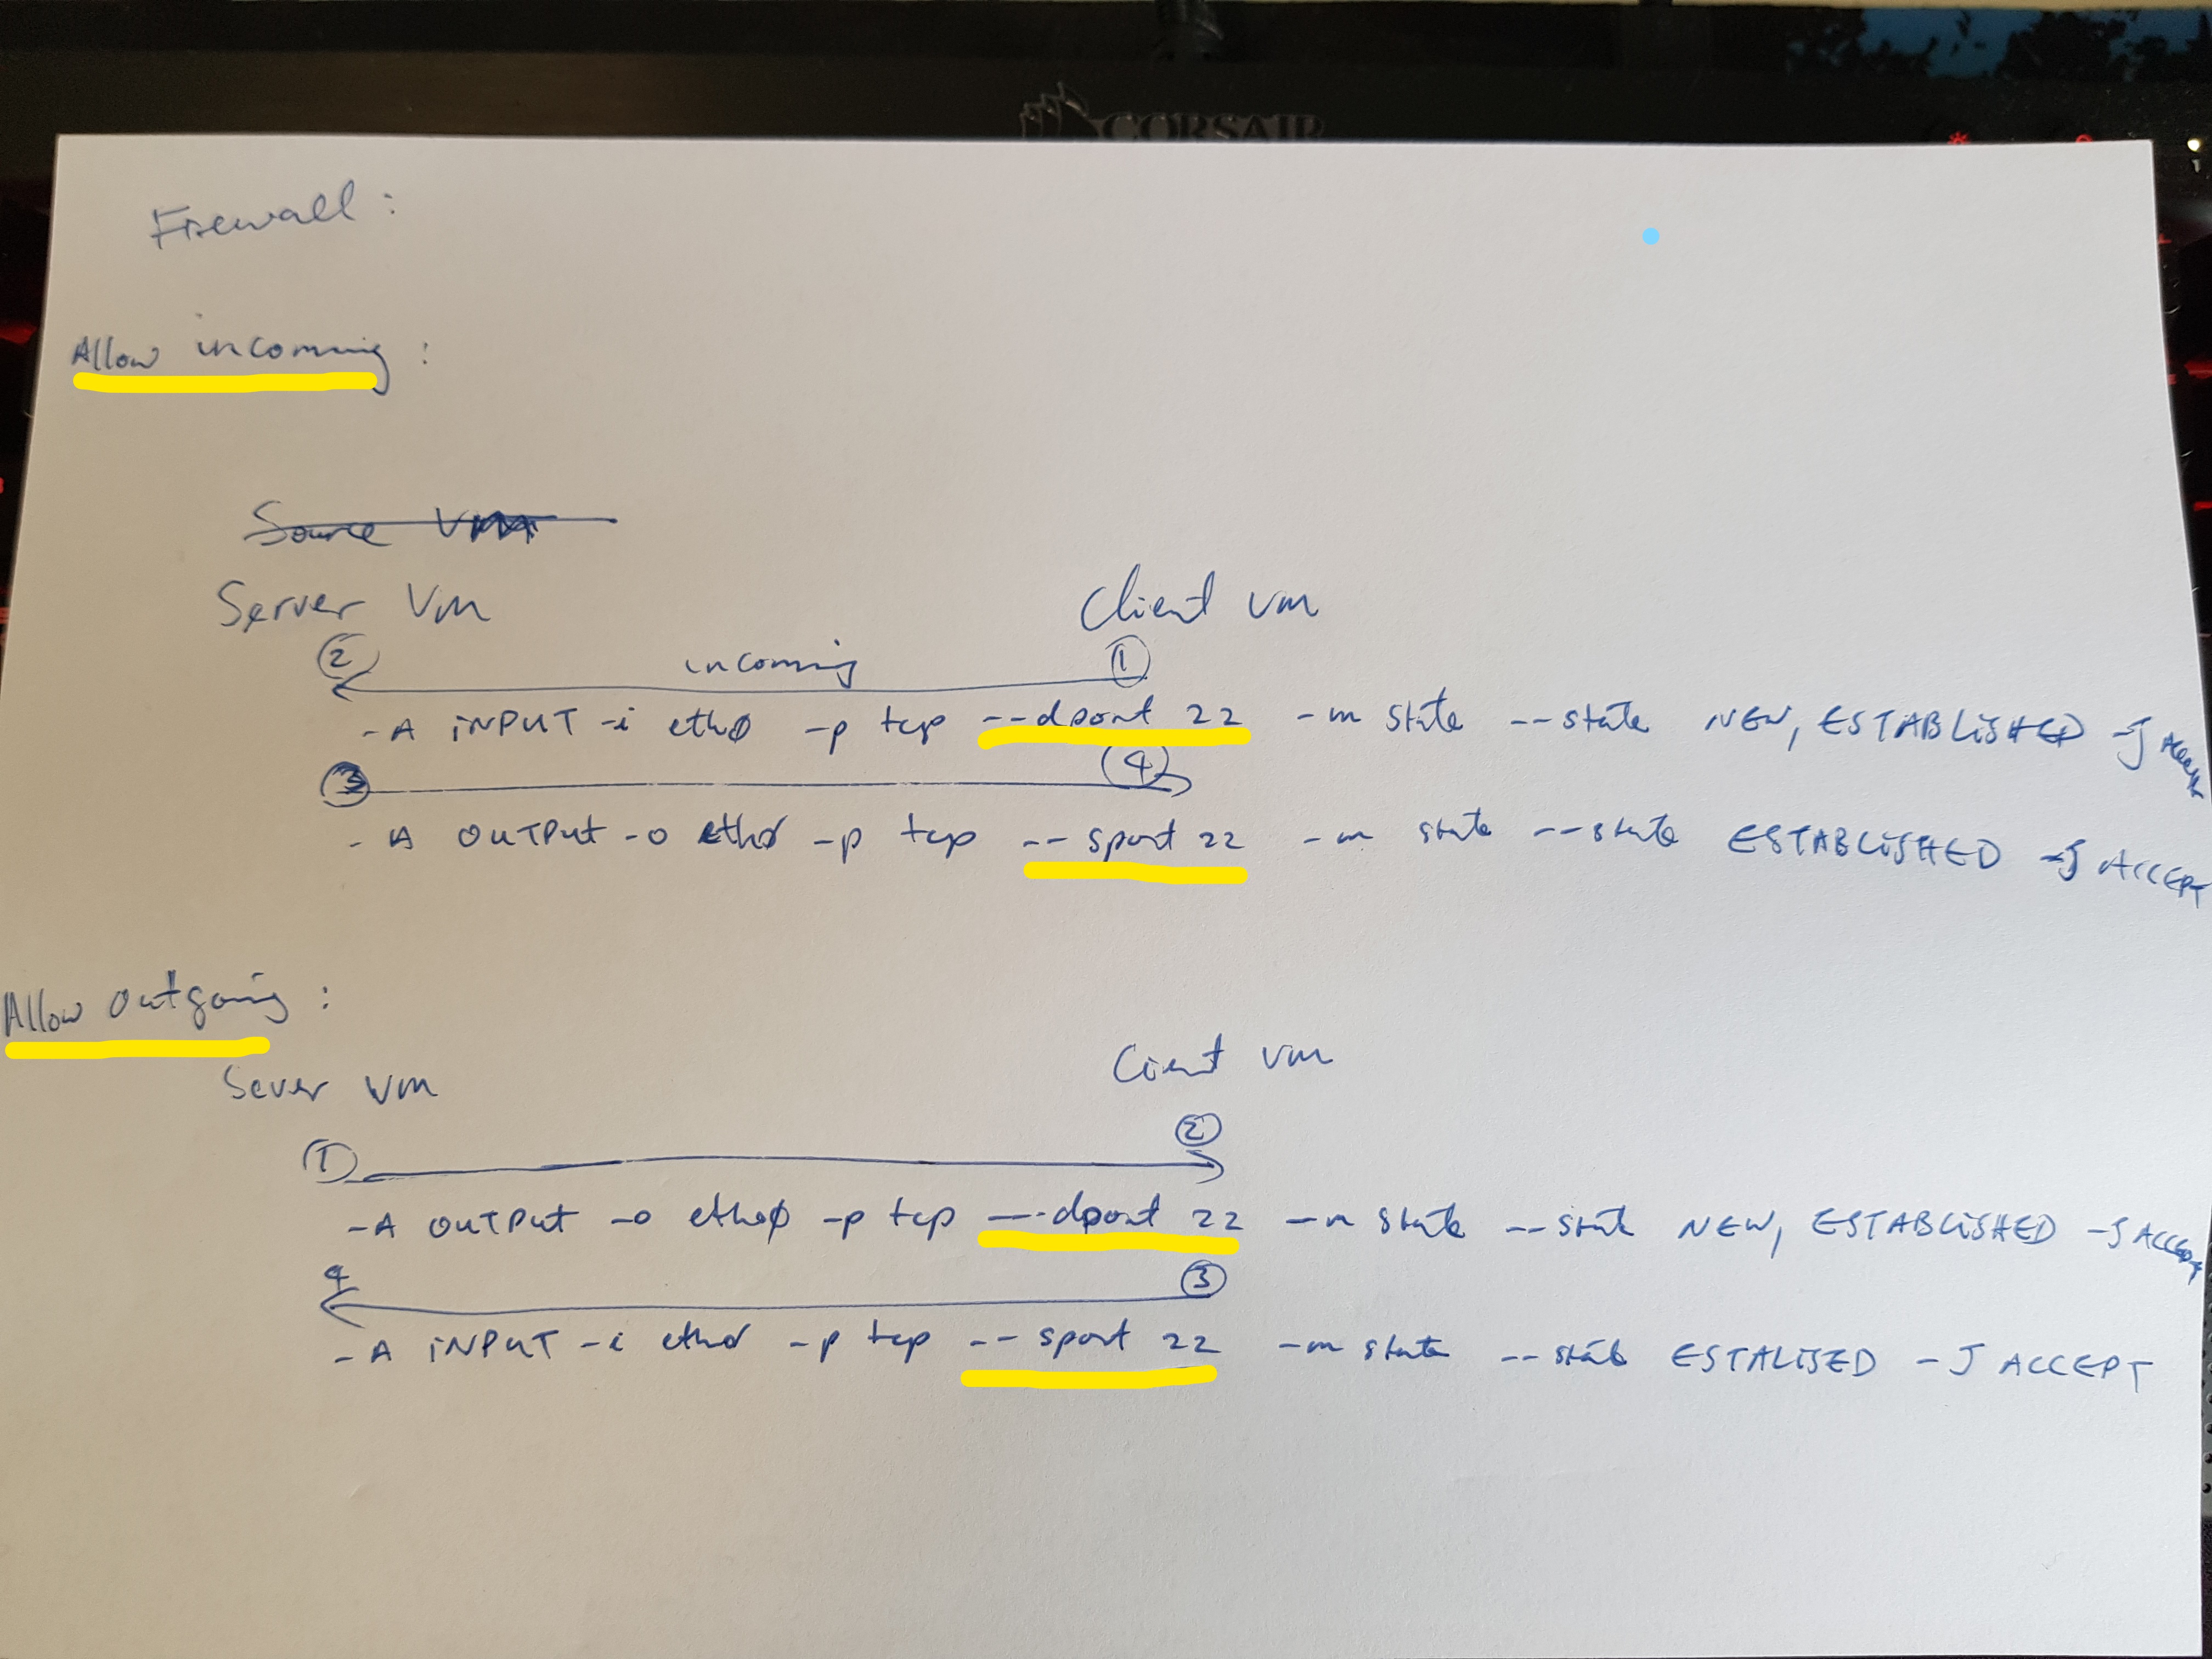 CORSAIR
Firewall :
Allow incoming :
Source VM
Server VM Client vm
2 incoming 1
-A iNPUT -i eth0 -p tcp --dport 22 -m state --state NEW, ESTABLiSHED -J Accept
3 4
-A OUTPUT -o eth0 -p tcp --sport 22 -m state --state ESTABLiSHED -J ACCEPT
Allow Outgoing :
Sever VM Cient vm
1 2
-A OUTPUT -o eth0 -p tcp --dport 22 -m state --state NEW, ESTABLiSHED -J ACCEPT
4 3
-A iNPUT -i eth0 -p tcp --sport 22 -m state --state ESTALISED -J ACCEPT